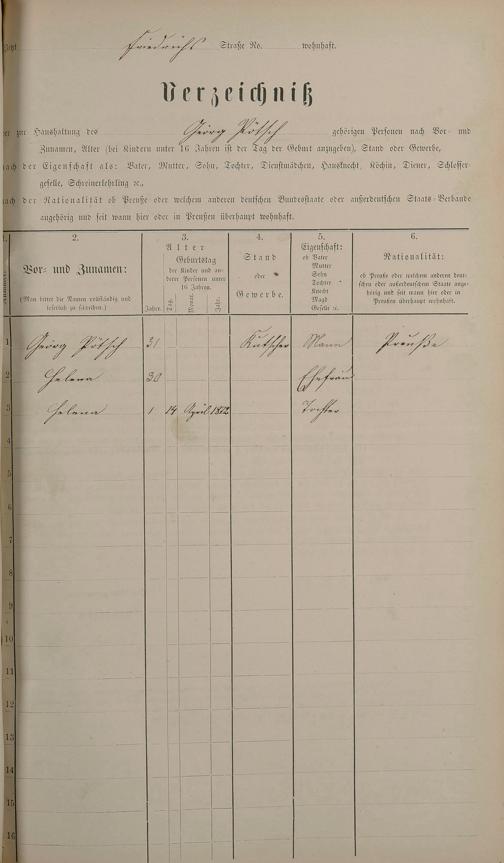 Jetzt Friedrichs Straße No. wohnhaft.
Verzeichniß
der zur Haushaltung des Georg Pötsch gehörigen Personen nach Vor- und
Zunamen, Alter (bei Kindern unter 16 Jahren ist der Tag der Geburt anzugeben), Stand oder Gewerbe,
nach der Eigenschaft als: Vater, Mutter, Sohn, Tochter, Dienstmädchen, Hausknecht, Köchin, Diener, Schlosser-
geselle, Schreinerlehrling ꝛc.,
nach der Nationalität ob Preuße oder welchem anderen deutschen Bundesstaate oder außerdeutschen Staats-Verbande
angehörig und seit wann hier oder in Preußen überhaupt wohnhaft.
1. 2. 3. 4. 5. 6.
Nummer.
Vor- und Zunamen:
(Man bittet die Namen vollständig und
leserlich zu schreiben.)
Alter
Geburtstag
der Kinder und an-
derer Personen unter
16 Jahren.
Jahre. Tag. Monat. Jahr.
Stand
oder
Gewerbe.
Eigenschaft:
ob Vater
Mutter
Sohn
Tochter
Knecht
Magd
Geselle ꝛc.
Nationalität:
ob Preuße oder welchem anderen deut-
schen oder außerdeutschen Staate ange-
hörig und seit wann hier oder in
Preußen überhaupt wohnhaft.
1 Georg Pötsch 31 Kutscher Mann Preuße
2 Helena 30 Ehefrau
3 Helena 1 14 April 1872 Tochter
4
5
6
7
8
9
10
11
12
13
14
15
16